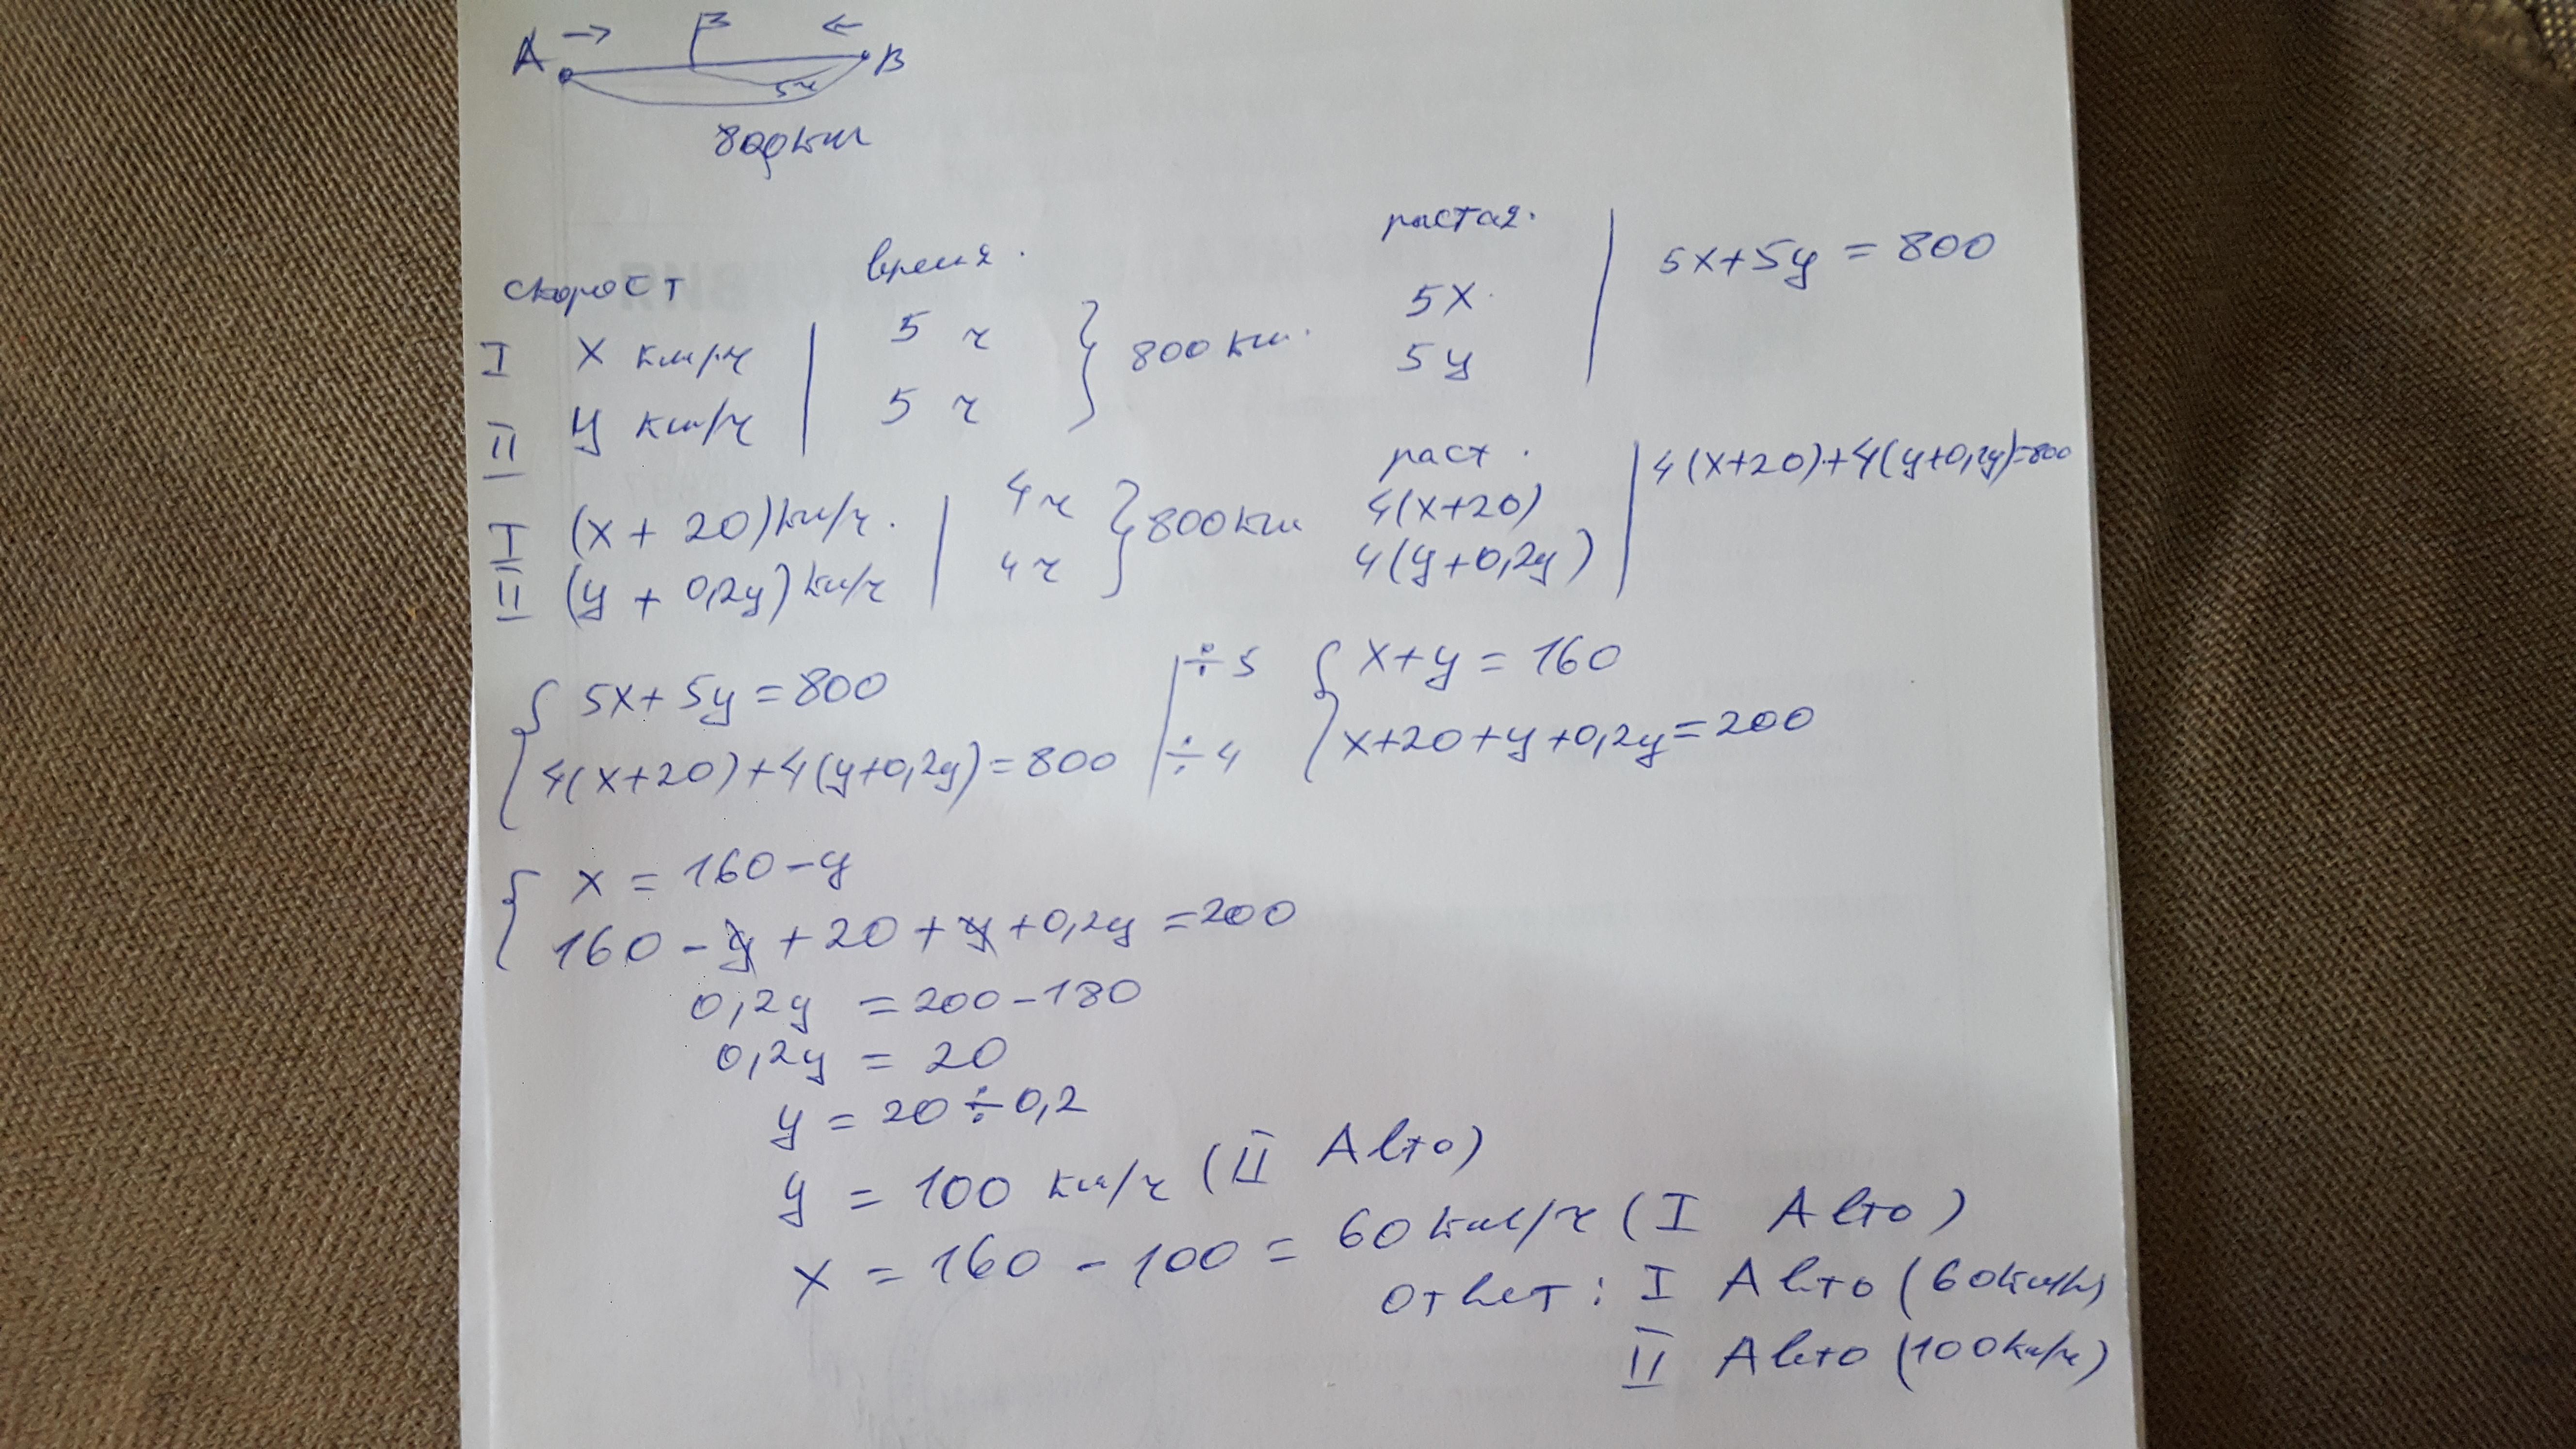 A → ← B
5ч
800км
скорост время. растоя.
I x км/ч | 5 ч } 800 км. 5x | 5x+5y = 800
II y км/ч | 5 ч 5y
раст.
I (x + 20) км/ч. | 4ч } 800км 4(x+20) | 4(x+20)+4(y+0,2y)=800
II (y + 0,2y) км/ч | 4ч 4(y+0,2y)
{ 5x+5y=800 | ÷5 { x+y = 160
4(x+20)+4(y+0,2y)=800 | ÷4 x+20+y+0,2y=200
{ x = 160-y
160 - y + 20 + y + 0,2y = 200
0,2y = 200-180
0,2y = 20
y = 20÷0,2
y = 100 км/ч (II Авто)
x = 160 - 100 = 60 км/ч (I Авто)
ответ: I Авто (60км/ч)
II Авто (100км/ч)